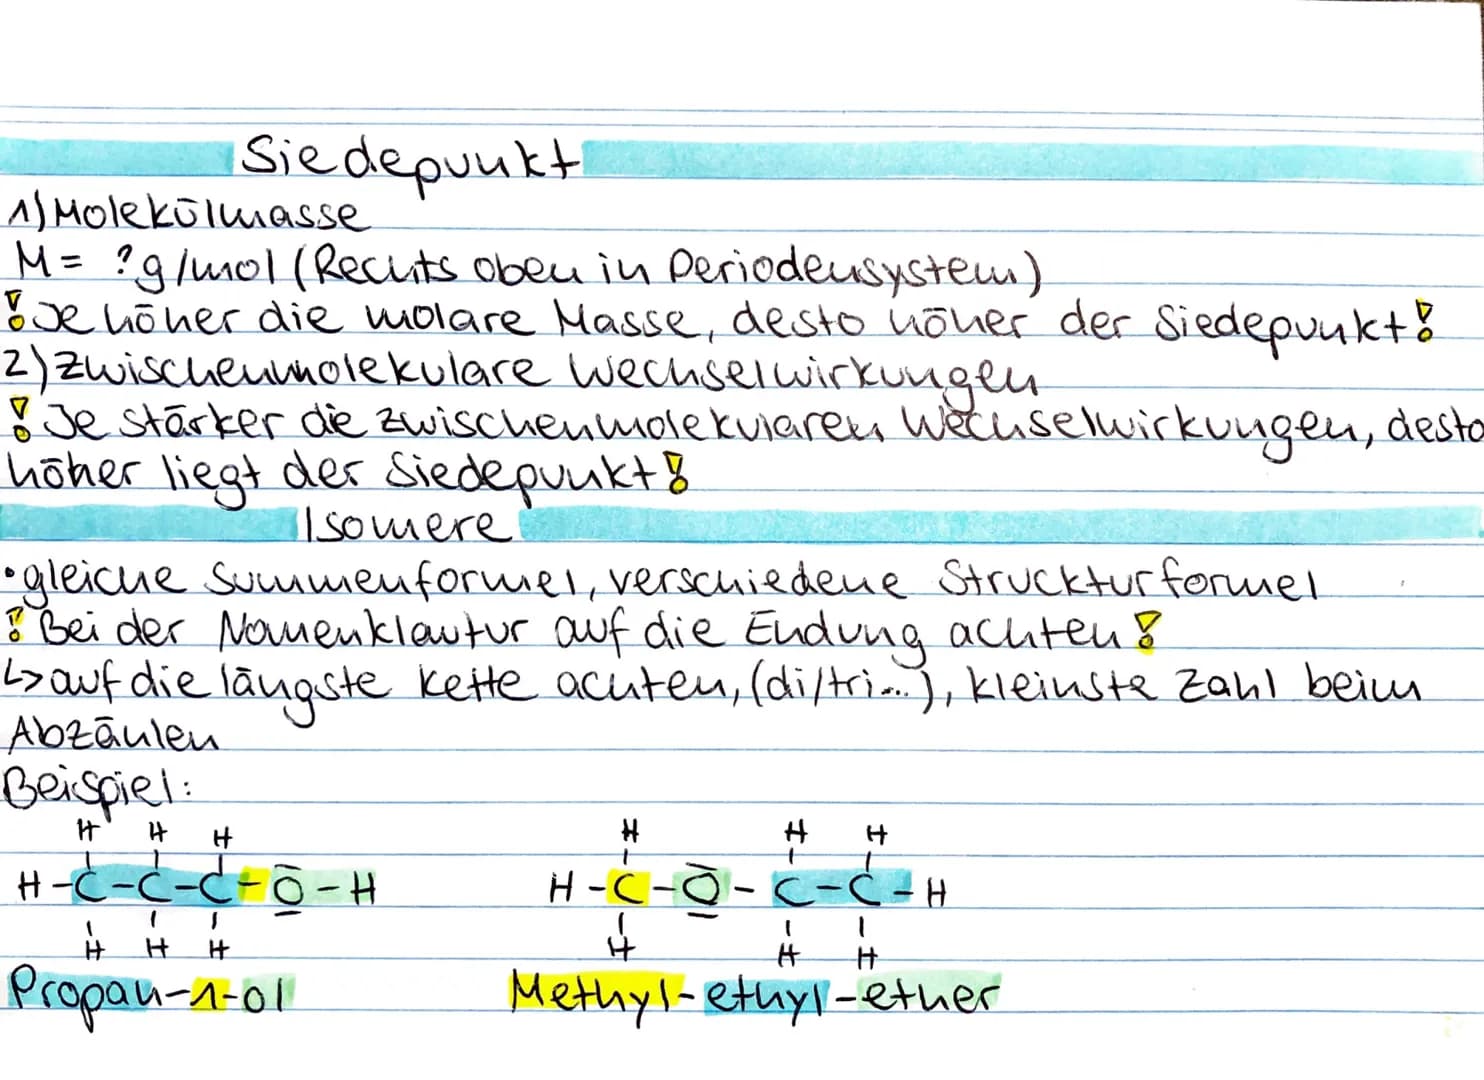 Siedepunkt
1) Molekülmasse
M= ?g/mol (Rechts oben in Periodensystem)
! Je höher die molare Masse, desto höher der Siedepunkt!
2) Zwischenmolekulare Wechselwirkungen
! Je stärker die zwischenmolekularen Wechselwirkungen, desto
höher liegt der Siedepunkt!
Isomere
• gleiche Summenformel, verschiedene Struckturformel
! Bei der Nomenklautur auf die Endung achten!
↳ auf die längste Kette achten, (di/tri...), kleinste Zahl beim
Abzählen
Beispiel:
H H H H H H
H-C-C-C-O-H H-C-O-C-C-H
H H H H H H
Propan-1-ol Methyl-ethyl-ether